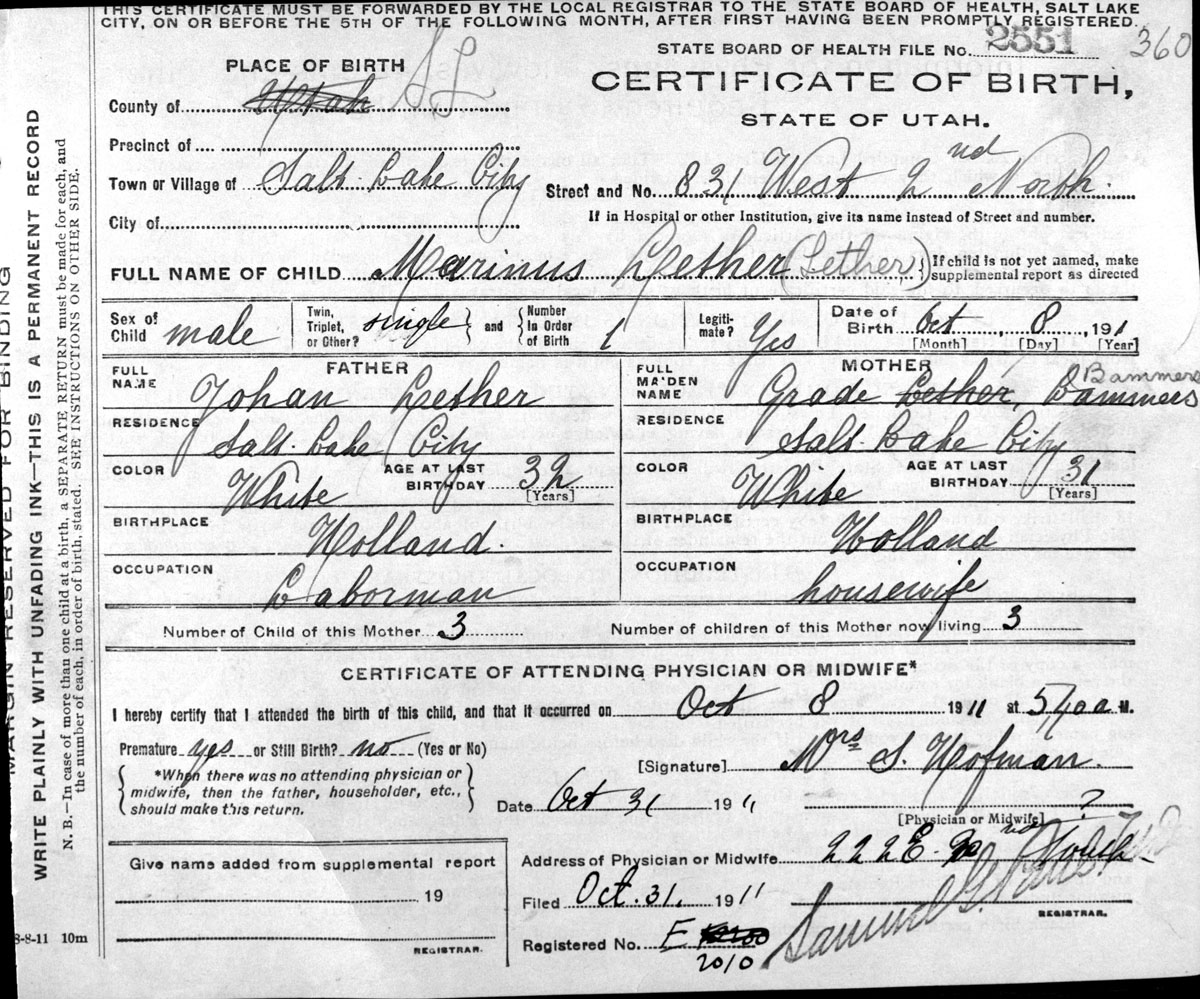 THIS CERTIFICATE MUST BE FORWARDED BY THE LOCAL REGISTRAR TO THE STATE BOARD OF HEALTH, SALT LAKE
CITY, ON OR BEFORE THE 5TH OF THE FOLLOWING MONTH, AFTER FIRST HAVING BEEN PROMPTLY REGISTERED.
STATE BOARD OF HEALTH FILE No. 2551 360
PLACE OF BIRTH
CERTIFICATE OF BIRTH,
STATE OF UTAH.
County of Utah S L
Precinct of
Town or Village of Salt Lake City Street and No. 831 West 2nd North.
City of
If in Hospital or other Institution, give its name instead of Street and number.
FULL NAME OF CHILD Marinus Lether (Lether) { If child is not yet named, make
supplemental report as directed
Sex of Child male Twin, Triplet, or Other? single and Number In Order of Birth 1 Legiti-mate? Yes Date of Birth Oct 8, 1911
[Month] [Day] [Year]
FATHER MOTHER
FULL NAME Johan Lether FULL MAIDEN NAME Grade Lether, Bammers Bammers
RESIDENCE Salt Lake City RESIDENCE Salt Lake City
COLOR White AGE AT LAST BIRTHDAY 32 [Years] COLOR White AGE AT LAST BIRTHDAY 31 [Years]
BIRTHPLACE Holland. BIRTHPLACE Holland
OCCUPATION Laborman OCCUPATION housewife
Number of Child of this Mother 3 Number of children of this Mother now living 3
CERTIFICATE OF ATTENDING PHYSICIAN OR MIDWIFE*
I hereby certify that I attended the birth of this child, and that it occurred on Oct 8 1911 at M.
Premature yes or Still Birth? no (Yes or No)
[Signature] Mrs S. Hofman.
*When there was no attending physician or
midwife, then the father, householder, etc.,
should make this return.
Date Oct 31 1911
[Physician or Midwife] ?
Give name added from supplemental report
19
REGISTRAR.
Address of Physician or Midwife 222 E. nd
Filed Oct. 31, 1911
Samuel G.
REGISTRAR.
Registered No. E 2010
8-8-11 10m
MARGIN RESERVED FOR BINDING
WRITE PLAINLY WITH UNFADING INK—THIS IS A PERMANENT RECORD
N. B.—In case of more than one child at a birth, a SEPARATE RETURN must be made for each, and
the number of each, in order of birth, stated. SEE INSTRUCTIONS ON OTHER SIDE.